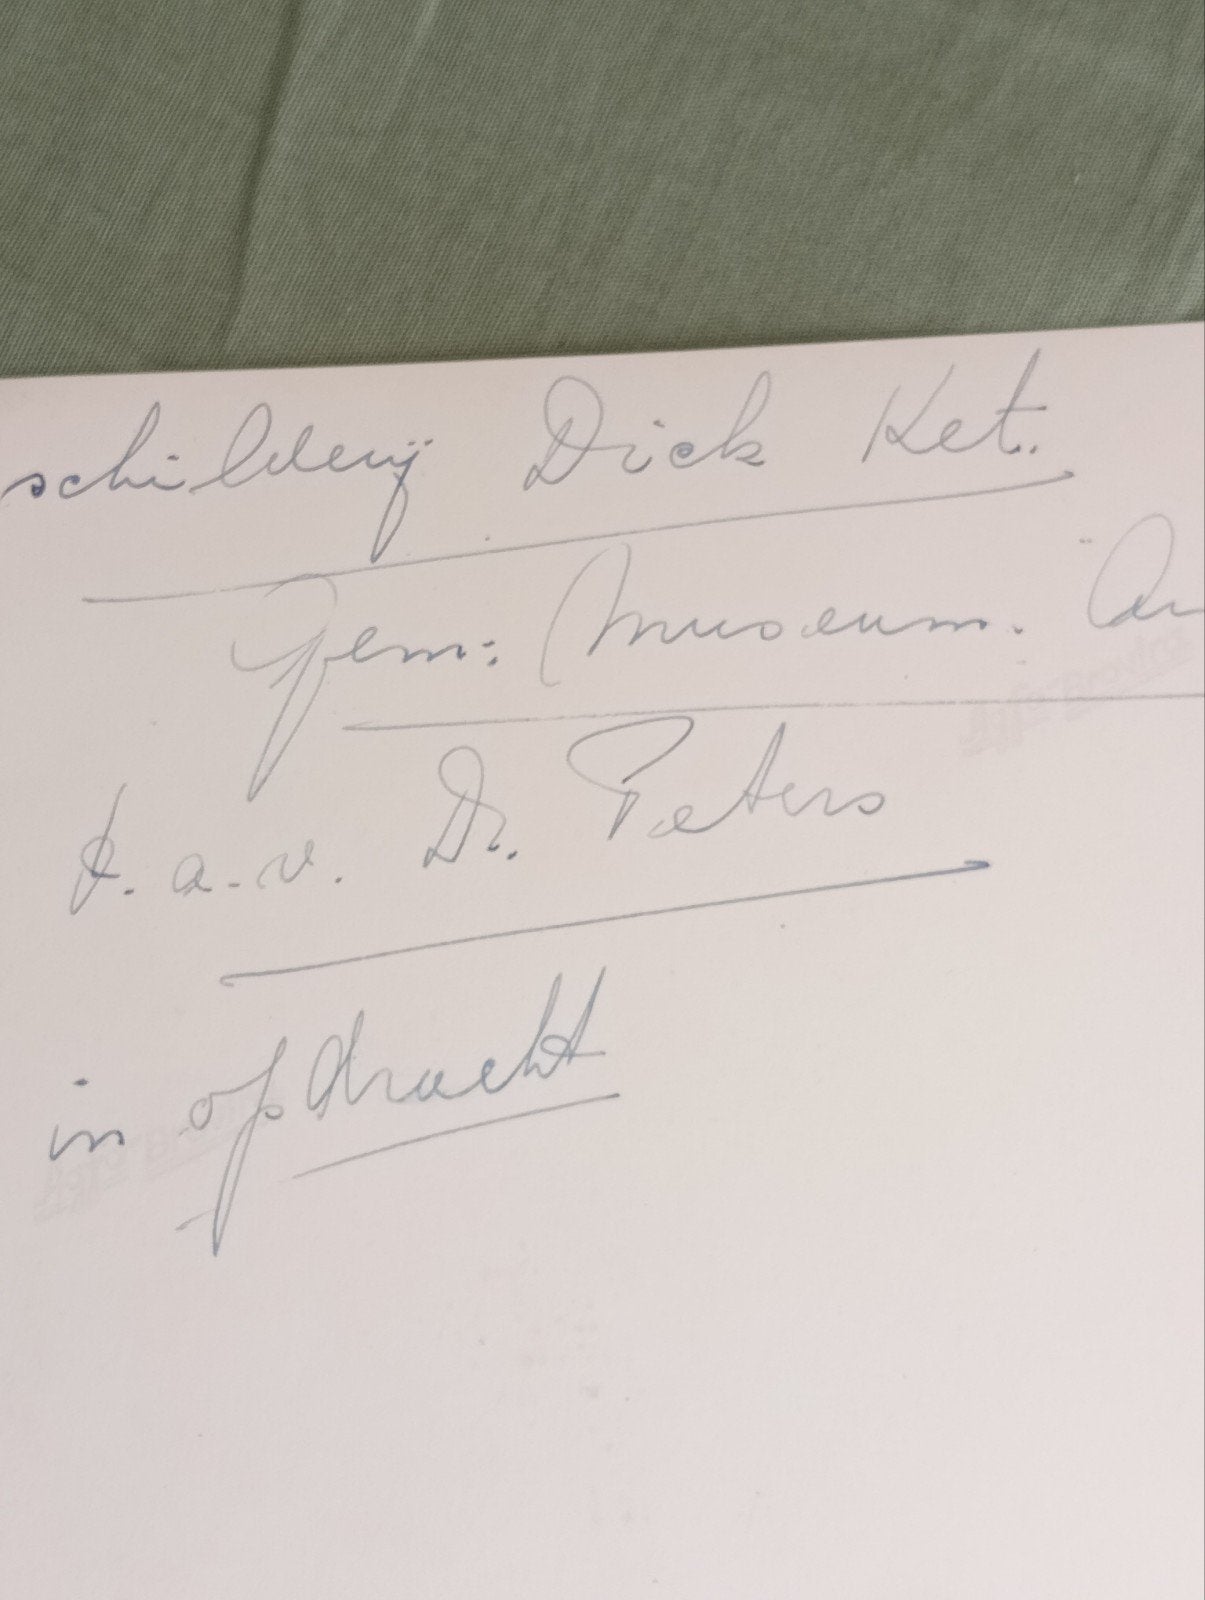 schilderij Dick Ket.
Gem: Museum.
t.a.v. Dr. Peters
in opdracht